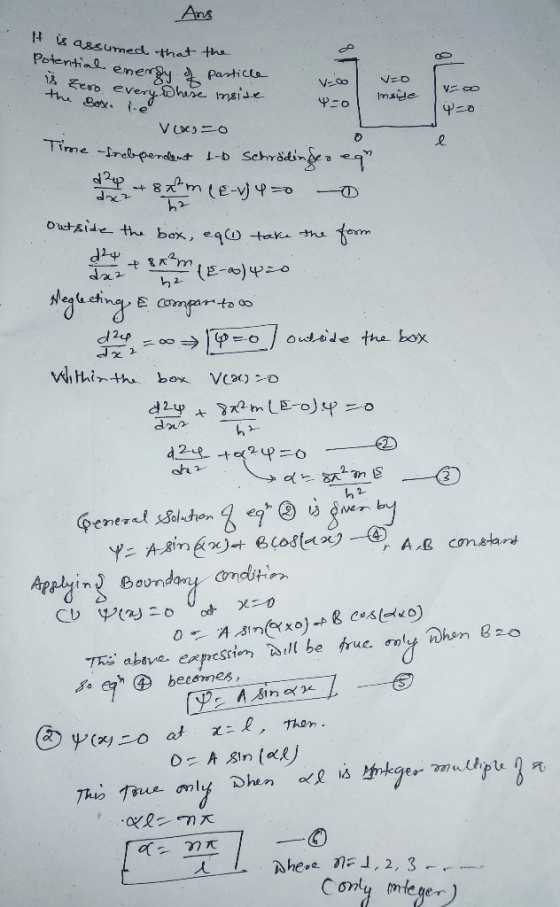 Ans
It is assumed that the
Potential energy of particle
is zero everywhere inside
the Box. i.e
V(x)=0
∞
∞
V=∞
ψ=0
V=0
inside
V=∞
ψ=0
0
l
Time-Independent 1-D Schrödinger eqⁿ
d²ψ/dx² + 8π²m/h² (E-V)ψ=0 —①
outside the box, eq(1) take the form
d²ψ/dx² + 8π²m/h² (E-∞)ψ=0
Neglecting E compar to ∞
d²ψ/dx² = ∞ ⇒ ψ=0 outside the box
Within the box V(x)=0
d²ψ/dx² + 8π²m/h² (E-0)ψ=0
d²ψ/dx² + α²ψ=0 —②
→ α= 8π²mE/h² —③
General solution of eqⁿ ② is given by
ψ= A sin(αx)+ B cos(αx) —④, A,B constant
Applying Boundary condition
(1) ψ(x)=0 at x=0
0= A sin(α×0)+B cos(α×0)
This above expression will be true only when B=0
So eqⁿ ④ becomes,
ψ= A sin αx —⑤
② ψ(x)=0 at x=l, then.
0= A sin(αl)
This true only when αl is integer multiple of π
αl=nπ
α= nπ/l —⑥
where n=1,2,3 - - -
(only integer)